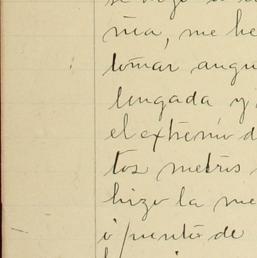 nia, me he
tomar angu
lengada y
el extremo d
tos metros
hizo la me
ó punto de